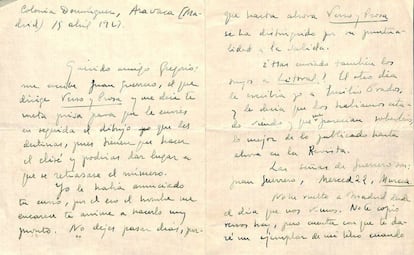 Colonia Domínguez, Aravaca (Ma-
drid) 15 abril 1927.
Querido amigo Gregorio:
me escribe Juan Guerrero, el que
dirige Verso y Prosa y me dice te
meta prisa para que le envíes
en seguida el dibujo que les
destinas, pues tienen que hacer
el cliché y podrías dar lugar a
que se retrasara el número.
Yo le había anunciado
tu envío, por él el hombre me
encarece te anime a hacerlo muy
pronto. No dejes pasar días, por-
que hasta ahora Verso y Prosa
se ha distinguido por su puntua-
lidad a la salida.
¿Has enviado también los
tuyos a Litoral? El otro día
le escribía yo a Emilio Prados,
y le decía que los habíamos esta-
do viendo y que parecían
lo mejor de lo publicado hasta
ahora en la Revista.
Las señas de Guerrero son:
Juan Guerrero, Merced 22, Murcia
No he vuelto a Madrid desde
el día que nos vimos. No te copio
versos hoy, pero cuenta con que te da-
ré un ejemplar de mi libro cuando